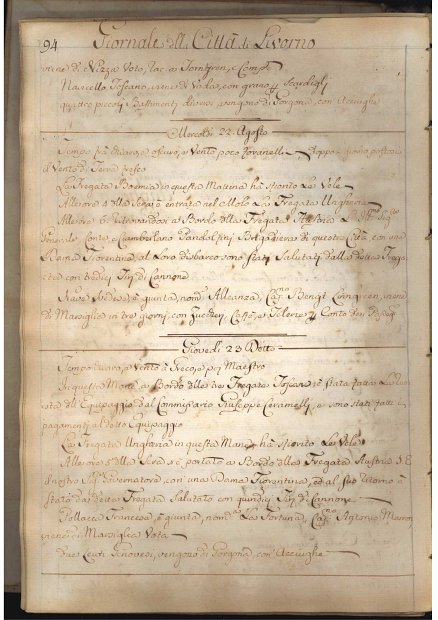 94 Giornale della Città di Livorno
viene di Nizza Voto, rac.o a Torngren, e Comp.
Navicello Toscano, viene di Vada, con grano Scardigli
quattro piccoli Bastimenti diversi, vengono di Gorgona, con Acciughe
Mercoldì 22. Agosto
Tempo fra chiaro, e oscuro, e Vento poco doppo giorno
Vento di Terra fresco
La Fregata Boemia in questa Mattina ha sciolto Le Vele
Alle ore 4 della entrata nel Molo La Fregata Ungheria
Alle ore 6 a Bordo della Fregata Austria
Generale Conte, e Ciamberlano Pandolfini di questa Città, con una
Dama Fiorentina, al Loro disbarco sono stati Salutati dalla detta Frega
ta con tredici Tiri di Cannone
Nave Svedese, è giunta, nom.a Alleanza, Cap.no Bengt viene
di Marsiglia in tre giorni, con Zuccheri, Caffè, e Telerie
Giovedì 23 Detto
Tempo chiaro, e Vento a Greco, e poi Maestro
In questa Matt.a a Bordo delle tre Fregate Toscane è stata fatta La Rivi
sta dell' Equipaggio dal Commissario Giuseppe Ceramelli, e sono stati fatti i
pagamenti al detto Equipaggio
La Fregata Ungheria in questa Matt.a ha sciolto Le Vele
Alle ore 5 della Sera si è portato a Bordo della Fregata Austria S.E.
il nostro Sig. Governatore, con una Dama Fiorentina, ed al suo ritorno è
stato da detta Fregata Salutato con quindici Tiri di Cannone
Pollacca Francese, è giunta, nom.a La Fortuna, Cap.no Antonio
viene di Marsiglia Vota
Due Leuti Genovesi, vengono di Gorgona, con Acciughe